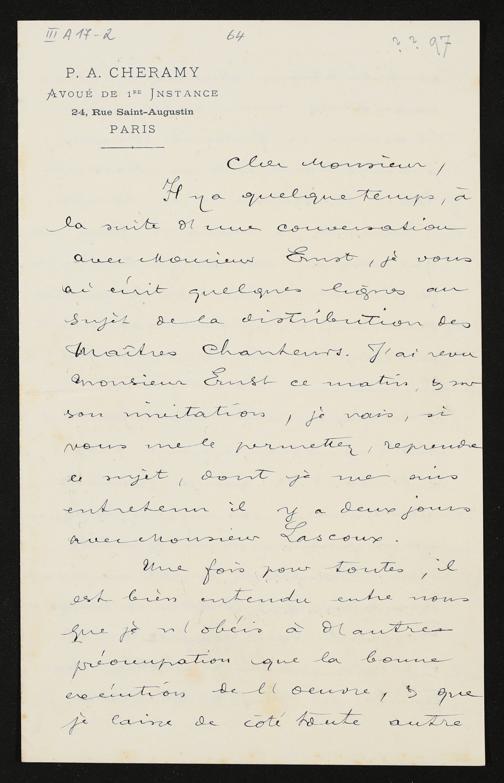 III A 17-2
64
? ? 97
P. A. CHERAMY
AVOUÉ DE 1RE INSTANCE
24, Rue Saint-Augustin
PARIS
Cher Monsieur,
Il y a quelque temps, à
la suite d'une conversation
avec Monsieur Ernst, je vous
ai écrit quelques lignes au
sujet de la distribution des
Maîtres Chanteurs. J'ai revu
Monsieur Ernst ce matin, & sur
son invitation, je vais, si
vous me le permettez, reprendre
ce sujet, dont je me suis
entretenu il y a deux jours
avec Monsieur Lascoux.
Une fois pour toutes, il
est bien entendu entre nous
que je n'obéis à d'autre
préoccupation que la bonne
exécution de l'oeuvre, & que
je laisse de côté toute autre